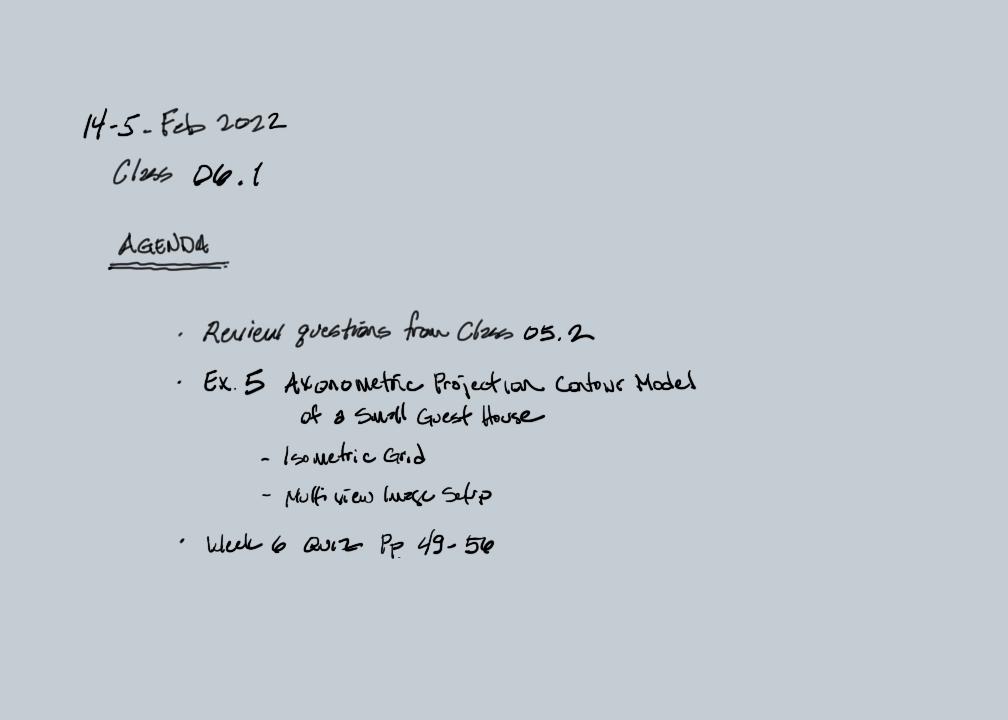 14-5-Feb 2022
Class 06.1
AGENDA
· Review questions from Class 05.2
· Ex. 5 Axonometric Projection Contour Model
of a Small Guest House
- Isometric Grid
- Multi view Image Setup
· Week 6 Quiz Pp. 49-56